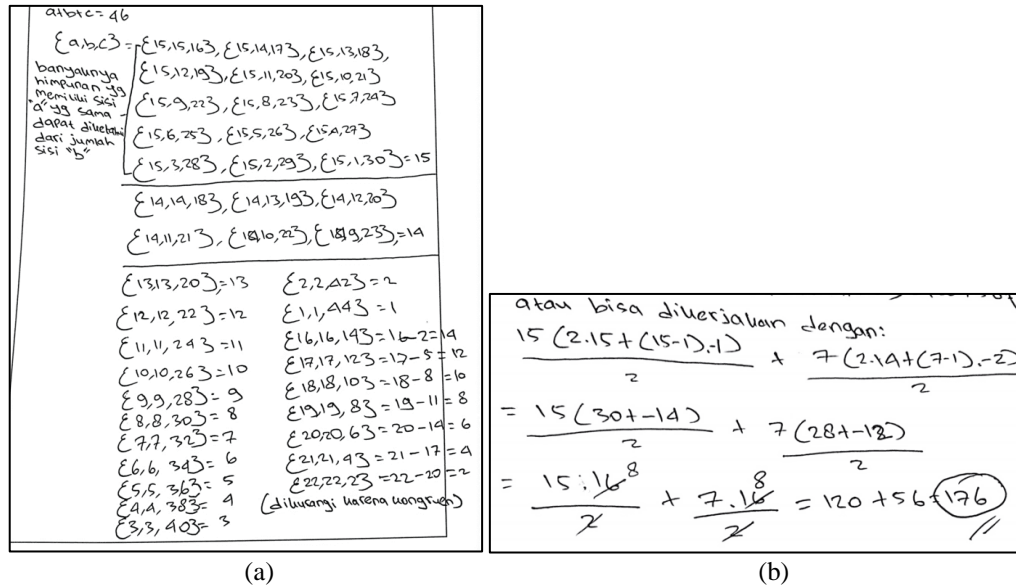 a+b+c = 46
{a,b,c} = {15,15,16}, {15,14,17}, {15,13,18},
{15,12,19}, {15,11,20}, {15,10,21}
{15,9,22}, {15,8,23}, {15,7,24}
{15,6,25}, {15,5,26}, {15,4,27}
{15,3,28}, {15,2,29}, {15,1,30} = 15
banyaknya
himpunan yg
memiliki sisi
"a" yg sama
dapat diketahui
dari jumlah
sisi "b"
{14,14,18}, {14,13,19}, {14,12,20}
{14,11,21}, {14,10,22}, {14,9,23} = 14
{13,13,20} = 13
{12,12,22} = 12
{11,11,24} = 11
{10,10,26} = 10
{9,9,28} = 9
{8,8,30} = 8
{7,7,32} = 7
{6,6,34} = 6
{5,5,36} = 5
{4,4,38} = 4
{3,3,40} = 3
{2,2,42} = 2
{1,1,44} = 1
{16,16,14} = 16-2 = 14
{17,17,12} = 17-5 = 12
{18,18,10} = 18-8 = 10
{19,19,8} = 19-11 = 8
{20,20,6} = 20-14 = 6
{21,21,4} = 21-17 = 4
{22,22,2} = 22-20 = 2
(dikurangi karena kongruen)
(a)
atau bisa dikerjakan dengan:
15(2.15+(15-1).-1)/2 + 7(2.14+(7-1).-2)/2
= 15(30+-14)/2 + 7(28+-12)/2
= 15.16/2 8 + 7.16/2 8 = 120 + 56 = 176
(b)